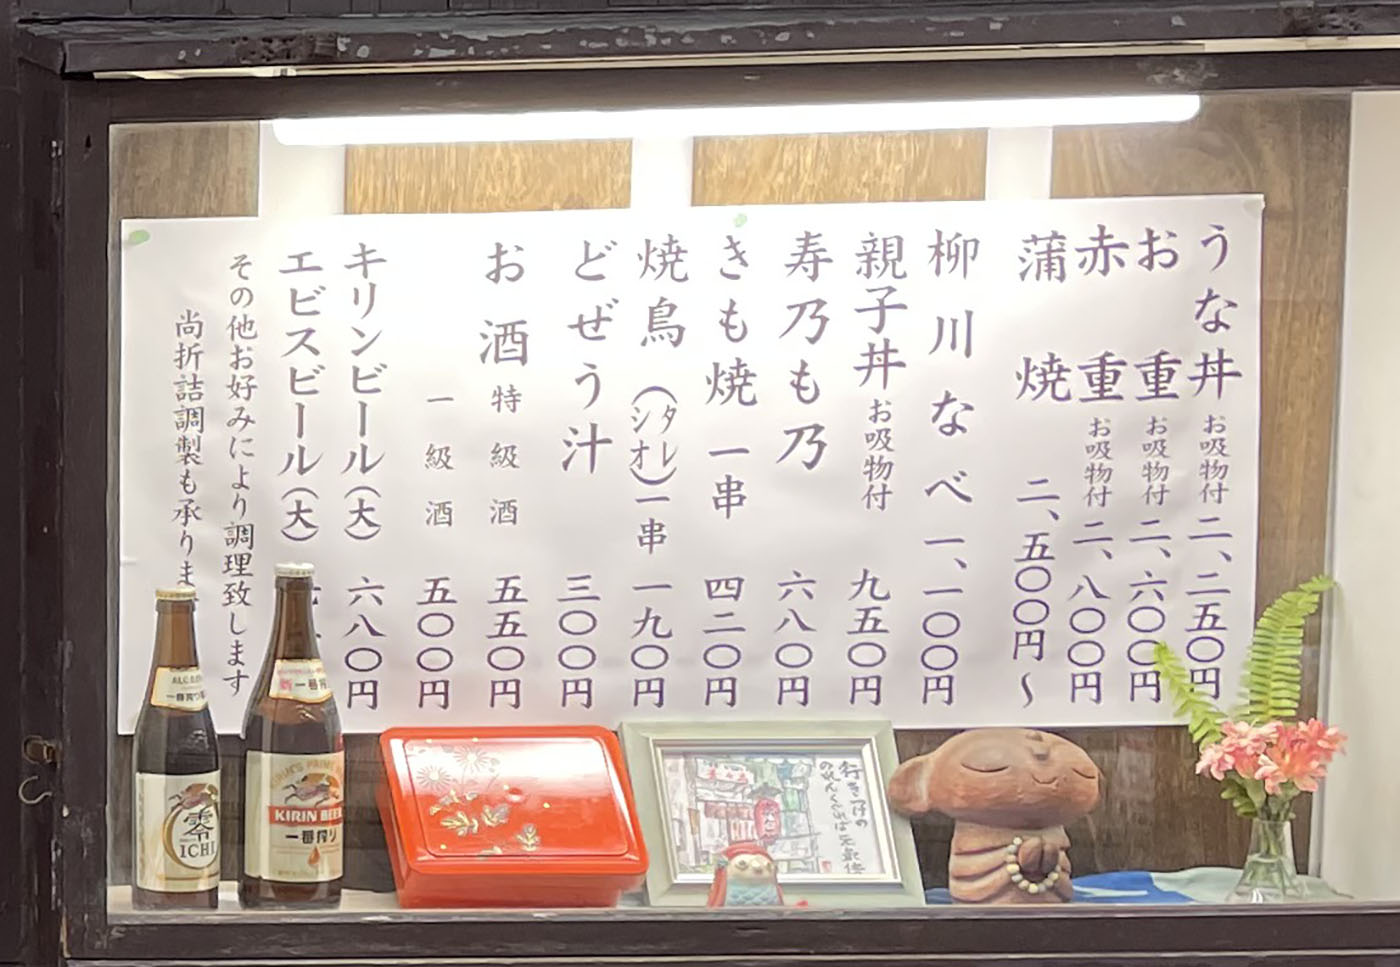 うな丼 お吸物付 二、二五〇円
お重 お吸物付 二、六〇〇円
赤重 お吸物付 二、八〇〇円
蒲焼 二、五〇〇円〜
柳川なべ 一、一〇〇円
親子丼 お吸物付 九五〇円
寿乃も乃 六八〇円
きも焼 一串 四二〇円
焼鳥（タレ シオ）一串 一九〇円
どぜう汁 三〇〇円
お酒 特級酒 五五〇円
一級酒 五〇〇円
キリンビール（大） 六八〇円
エビスビール（大）
その他お好みにより調理致します
尚折詰調製も承りま
一番搾り
零
ICHI
新一番搾り
KIRIN BEER
一番搾り
行きつけの